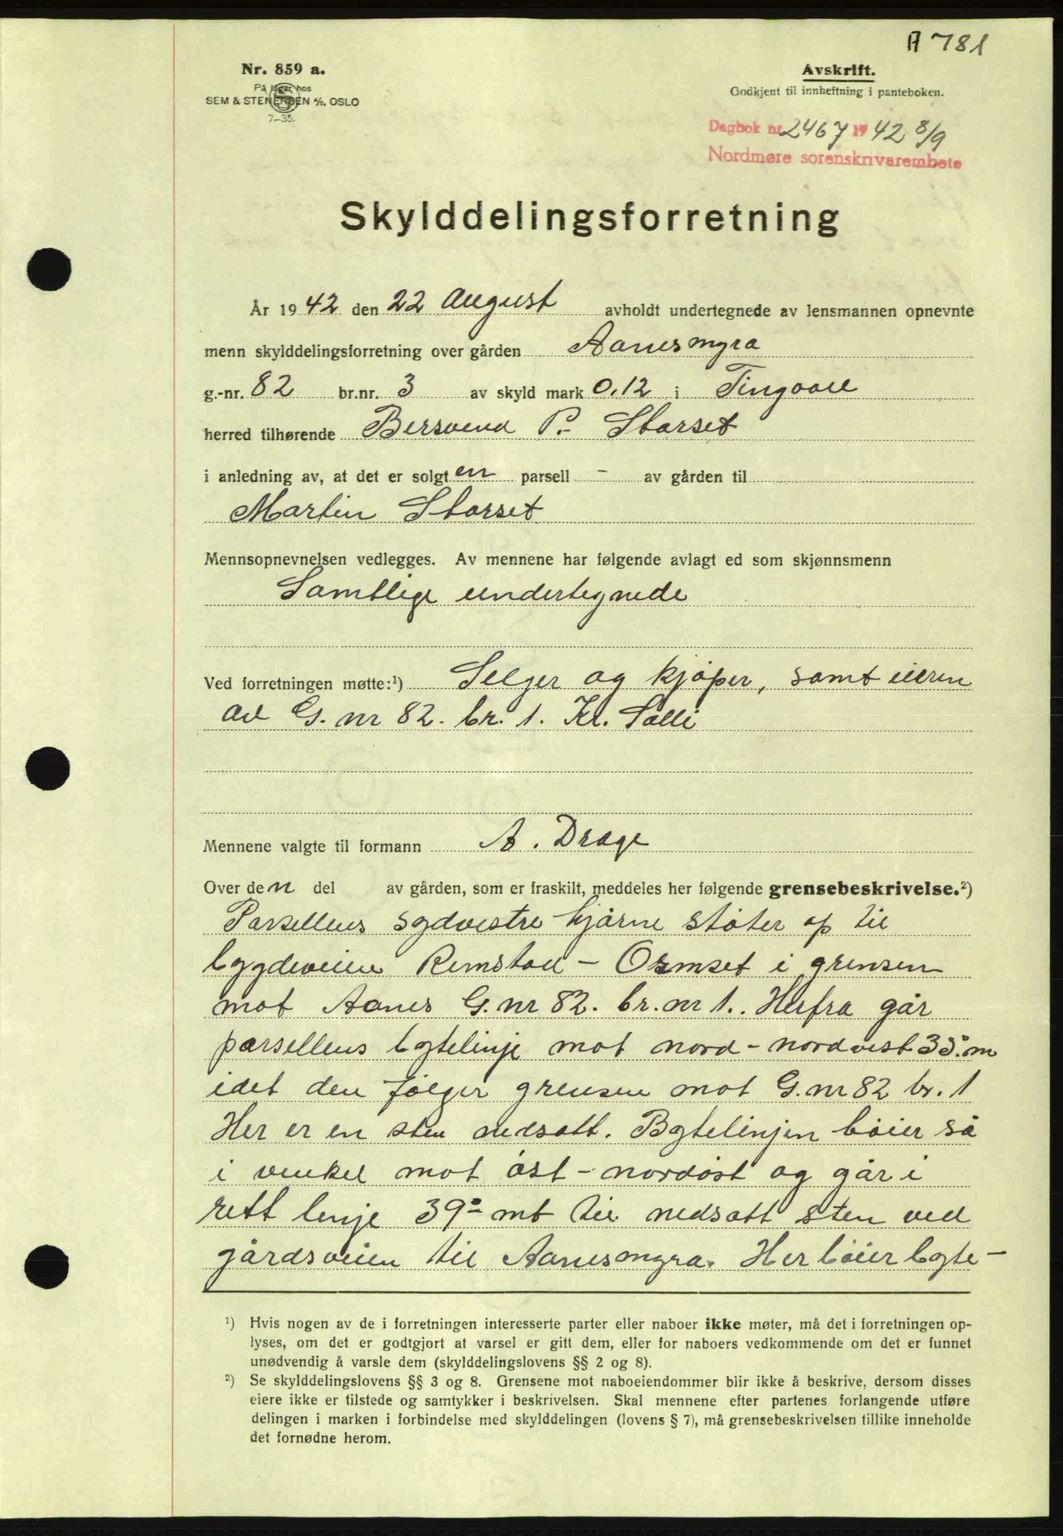 A 781
Nr. 859 a.
På lager hos
SEM & STENERSEN A/S, OSLO
7-35.
Avskrift.
Godkjent til innheftning i panteboken.
Dagbok nr. 2467 1942 8/9
Nordmøre sorenskrivarembete
Skylddelingsforretning
År 1942 den 22 August avholdt undertegnede av lensmannen opnevnte
menn skylddelingsforretning over gården Aanesmyra
g.-nr. 82 br.nr. 3 av skyld mark 0,12 i Tingvoll
herred tilhørende Bersvend P. Storset
i anledning av, at det er solgt en parsell - av gården til
Martin Storset
Mennsopnevnelsen vedlegges. Av mennene har følgende avlagt ed som skjønnsmenn
Samtlige undertegnede
Ved forretningen møtte:¹) Selger og kjøper, samt eieren
av G. nr 82. br. 1. Kr. Solli
Mennene valgte til formann A. Drage
Over den del av gården, som er fraskilt, meddeles her følgende grensebeskrivelse.²)
Parsellens sydvestre hjørne støter op til
bygdeveien Rimstad - Ormset i grensen
mot Aanes G. nr 82. br. nr 1.. Herfra går
parsellens bytelinje mot nord - nordvest 35.- m
idet den følger grensen mot G. nr 82 br. 1
Her er en sten nedsatt. Bytelinjen bøier så
i vinkel mot øst - nordøst og går i
rett linje 39.- mt til nedsatt sten ved
gårdsveien til Aanesmyra. Her bøier byte-
¹) Hvis nogen av de i forretningen interesserte parter eller naboer ikke møter, må det i forretningen op-
lyses, om det er godtgjort at varsel er gitt dem, eller for naboers vedkommende om det er funnet
unødvendig å varsle dem (skylddelingslovens §§ 2 og 8).
²) Se skylddelingslovens §§ 3 og 8. Grensene mot naboeiendommer blir ikke å beskrive, dersom disses
eiere ikke er tilstede og samtykker i beskrivelsen. Skal mennene efter partenes forlangende utføre
delingen i marken i forbindelse med skylddelingen (lovens § 7), må grensebeskrivelsen tillike inneholde
det fornødne herom.